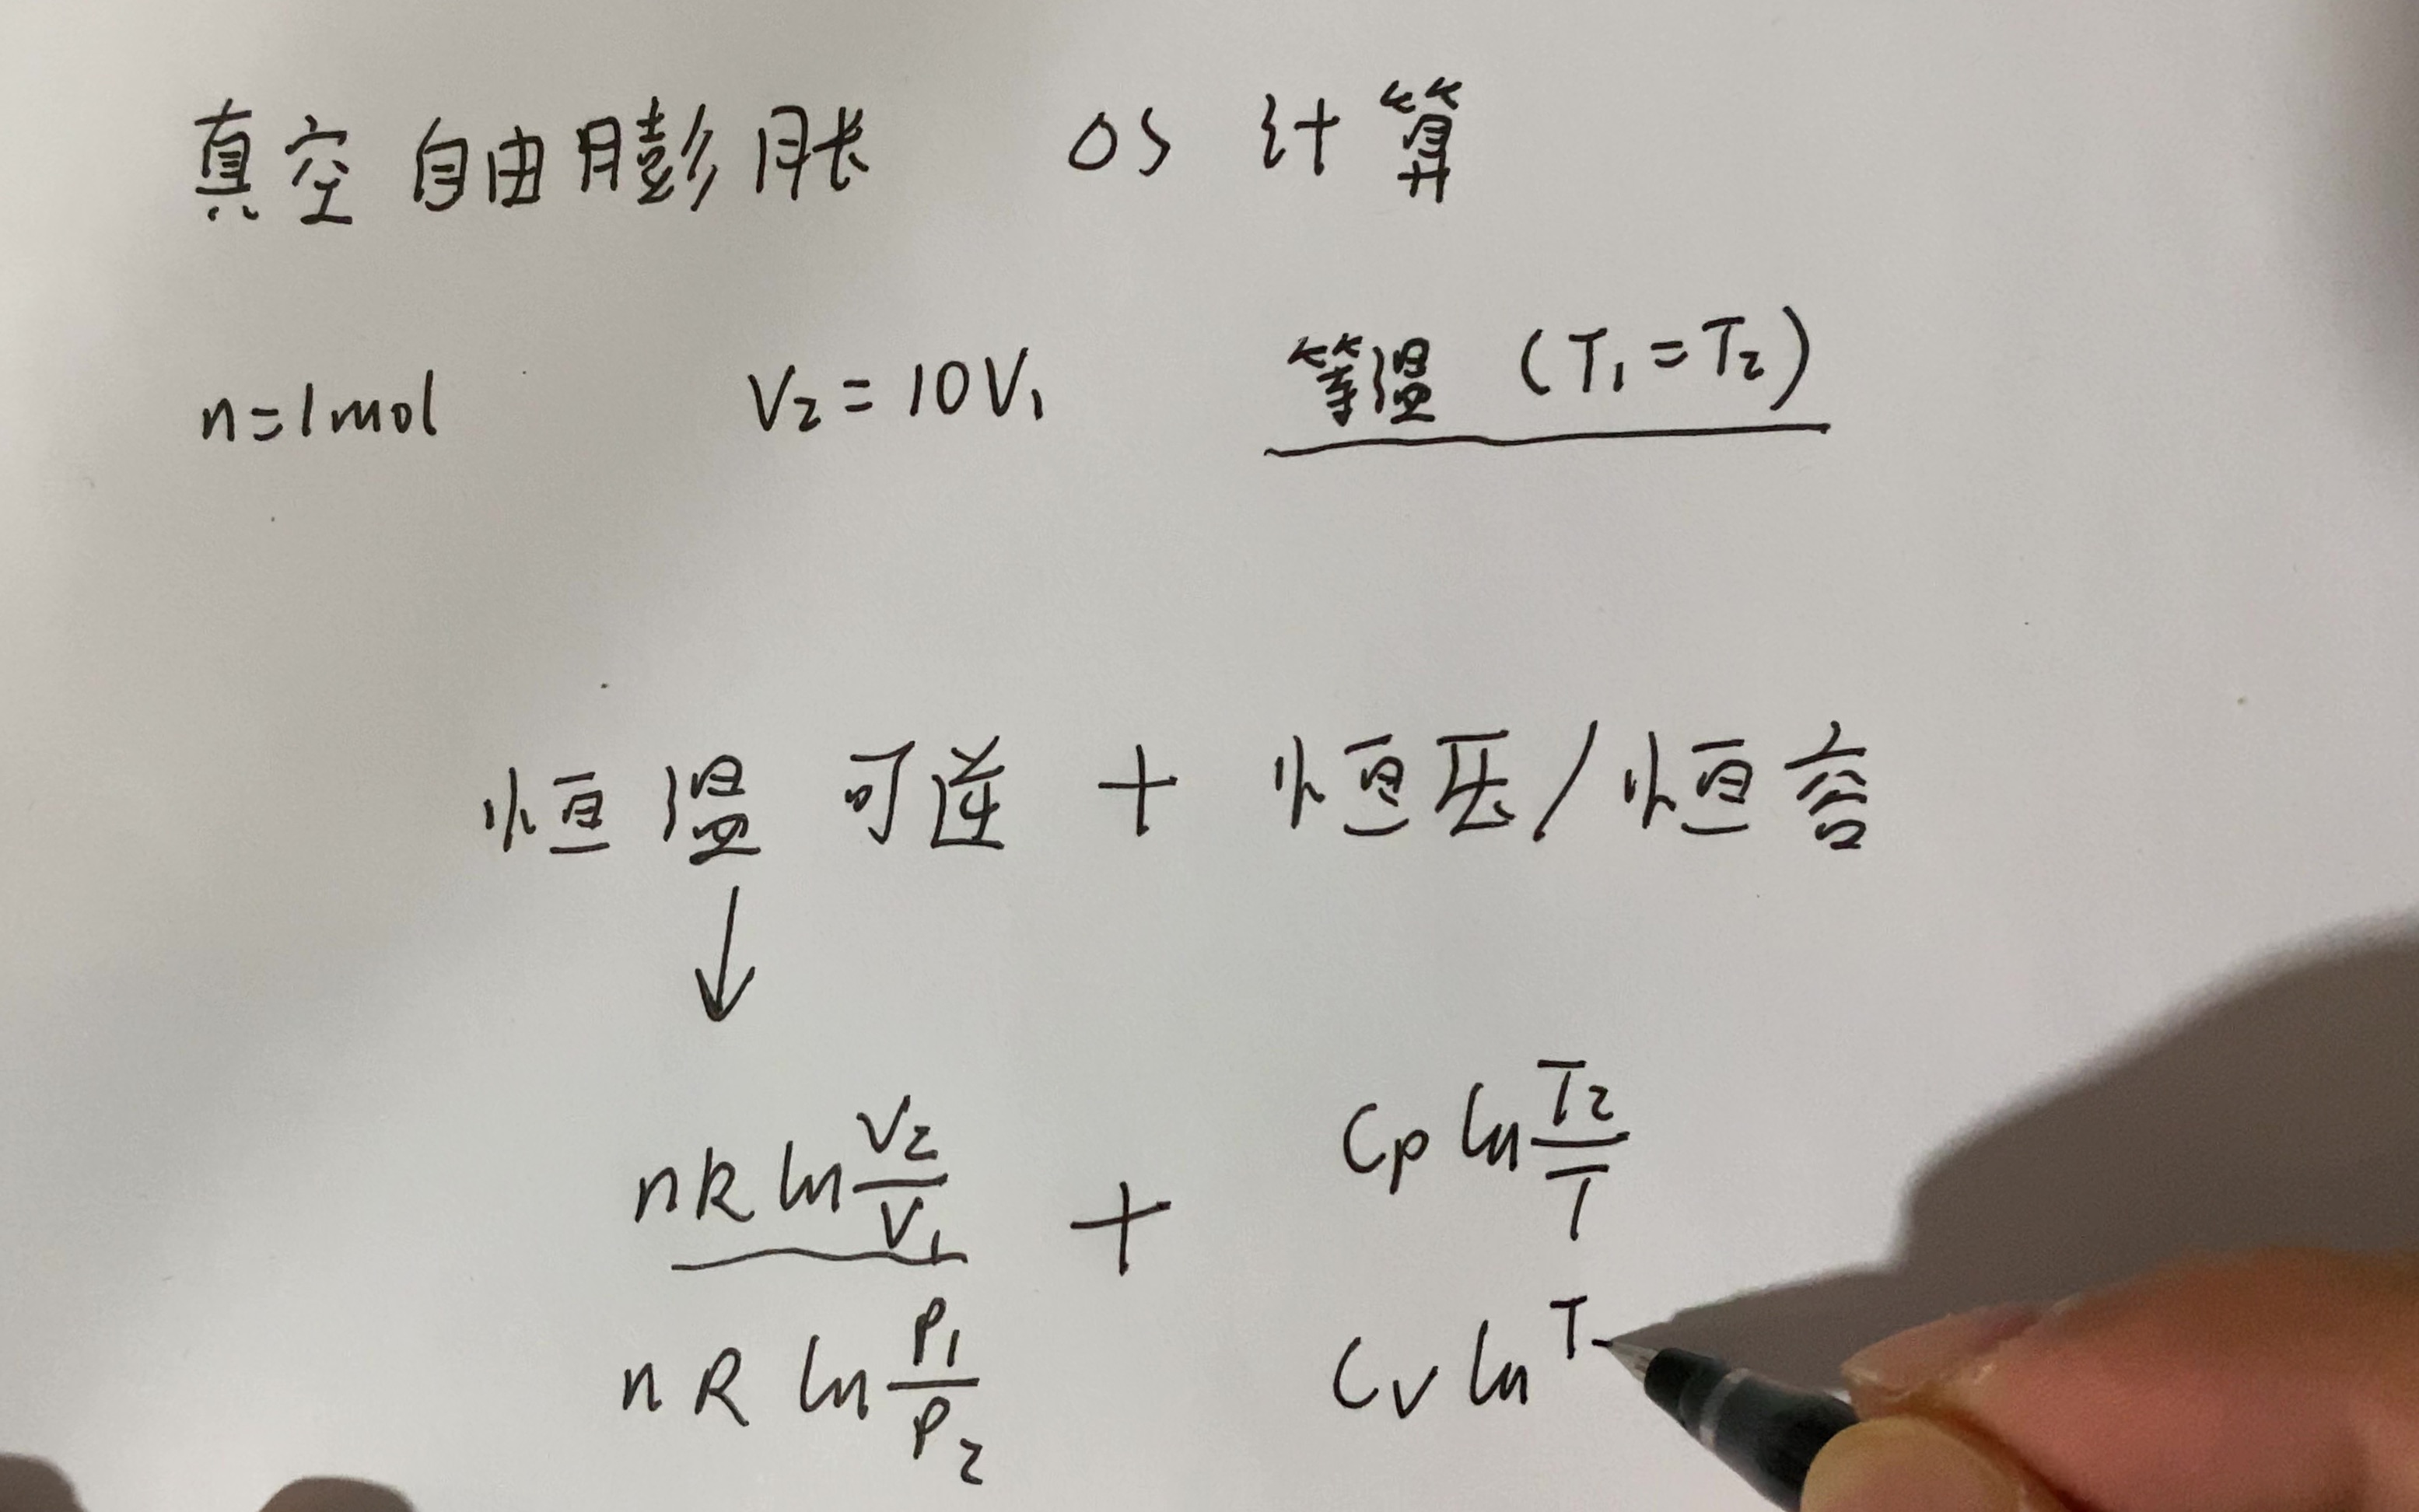 真空自由膨胀 ΔS 计算
n=1mol V₂=10V₁ 等温 (T₁=T₂)
恒温可逆 + 恒压/恒容
↓
nR ln V₂/V₁ + Cp ln T₂/T
nR ln P₁/P₂ Cv ln T